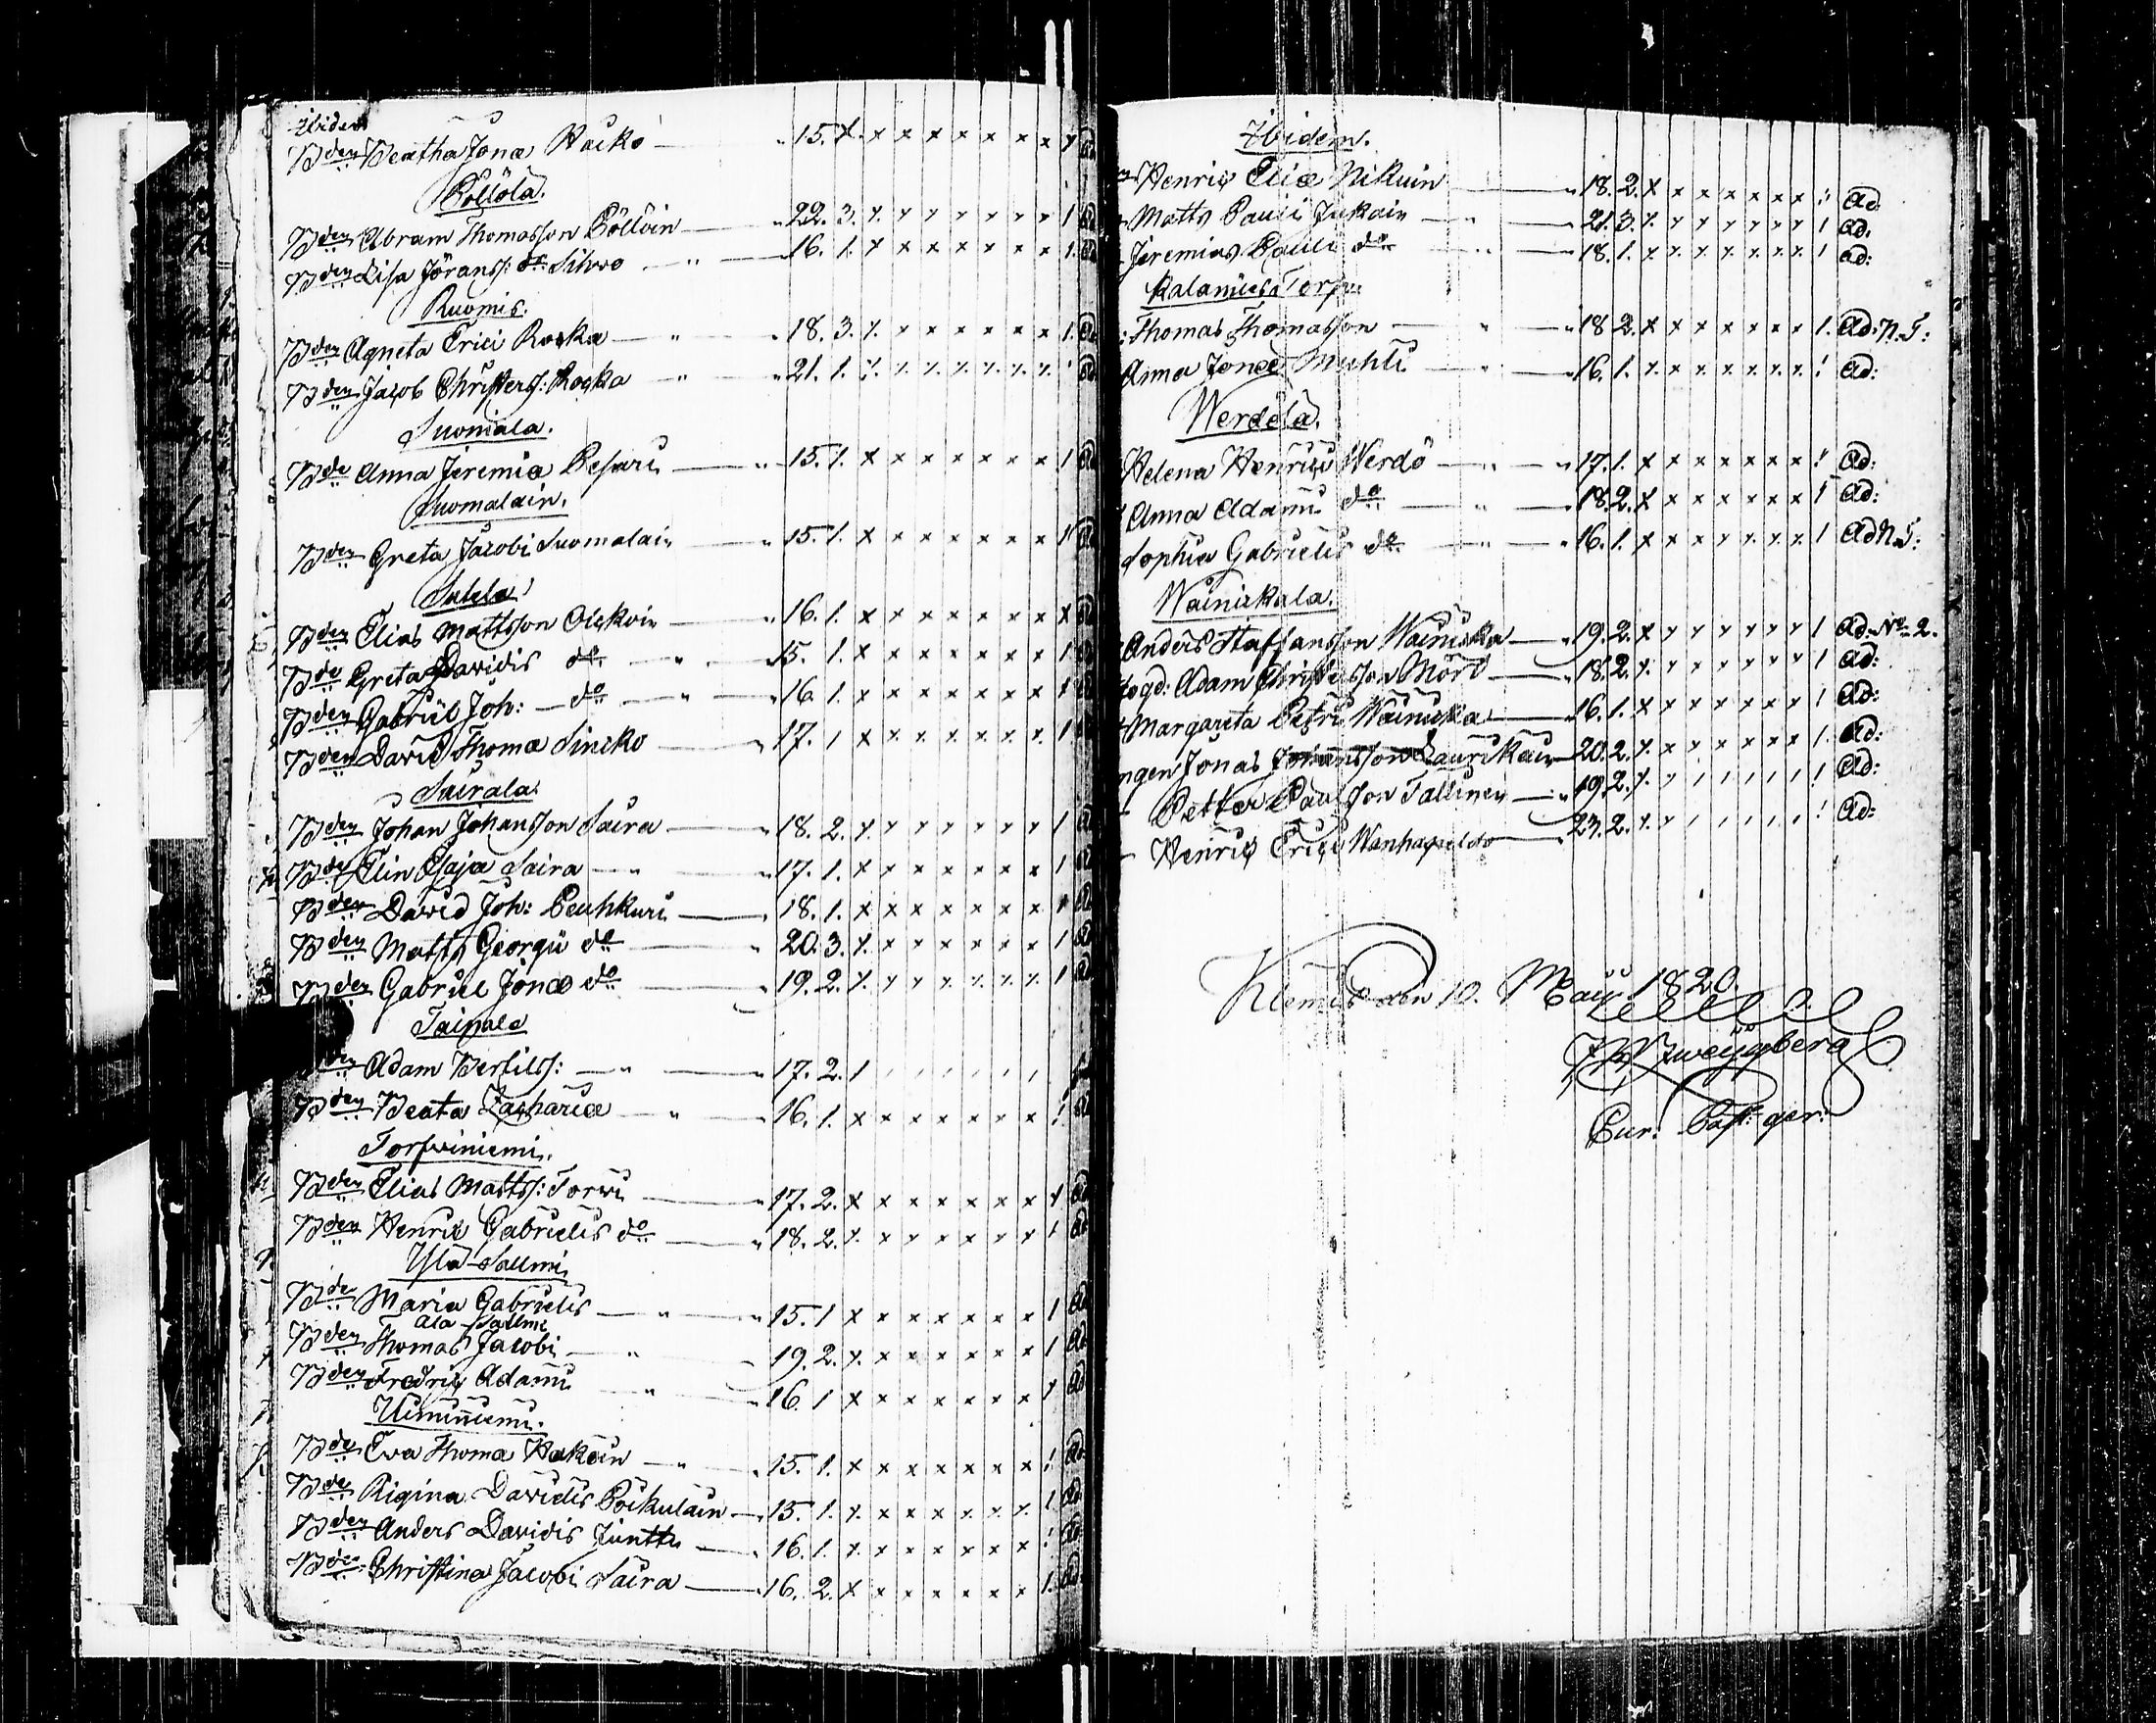 Ibidem
Bden Beatha Jonæ Hacko 15. x x x x x x x x x ad
Pöllölä.
Bden Abram Thomasson Pölloin 22. 3. x x x x x x x 1 ad
Bden Lisa Jöranss: do Sihwo 16. 1. x x x x x x x 1. ad
Ruomis.
Bden Agneta Erici Roska 18. 3. x x x x x x x 1. ad
Bden Jacob Christerss: Roska 21. 1. x x x x x x x 1 ad
Suomala.
Bde Anna Jeremiæ Pesari 15. 1. x x x x x x x 1 ad
Suomalain.
Bden Greta Jacobi Suomalain 15. 1. x x x x x x x 1 ad
Sutela
Bden Elias Mattsson Olckoin 16. 1. x x x x x x x x ad
Bde Greta Davidis do 15. 1. x x x x x x x 1
Bden Gabriel Joh: do 16. 1. x x x x x x x 1
Bden David Thomæ Sincko 17. 1 x x x x x x x 1
Sairala
Bden Johan Johansson Saira 18. 2. x x x x x x x 1
Bde Elin Esajæ Saira 17. 1. x x x x x x x 1
Bden David Joh: Peuhkuri 18. 1. x x x x x x x 1
Bden Matts Georgii do 20. 3. x x x x x x x 1
Bden Gabriel Jonæ do 19. 2. x x x x x x x 1
Taipale
den Adam Bertilss: 17. 2. 1
Bden Beata Zachariæ 16. 1. x x x x x x x 1
Torfwiniemi.
Bden Elias Mattss: Torwi 17. 2. x x x x x x x x ad
Bden Henric Gabrielis do 18. 2. x x x x x x x 1 ad
Ylä-Sallmi
Bde Maria Gabrielis 15. 1 x x x x x x x 1 ad
Ala Sallmi
Bden Thomas Jacobi 19. 2. x x x x x x x 1 ad
Bden Fredric Adami 16. 1 x x x x x x x 1 ad
Uiminiemi.
Bde Eva Thomæ Hakain 15. 1. x x x x x x x 1 ad
Bde Rigina Davidis Poikulain 15. 1. x x x x x x x 1 ad
Bden Anders Davidis Juntti 16. 1. x x x x x x x 1 ad
Bde Christina Jacobi Saira 16. 2. x x x x x x x 1. ad:
Ibidem.
Henric Eliæ Nikuin 18. 2. x x x x x x x 1 ad
Matts Pauli Jukain 21. 3. x x x x x x x 1 ad.
Jeremias Pauli do 18. 1. x x x x x x x 1 ad:
Kalamies Torp
Thomas Thomasson 18 2. x x x x x x x 1. ad: N. 5:
Anna Jonæ Muhli 16. 1. x x x x x x x 1 ad:
Werdölä.
Helena Henrici Werdö 17. 1. x x x x x x x 1 ad:
Anna Adami do 18. 2. x x x x x x x 1 ad:
Sophia Gabrielis do 16. 1. x x x x x x x 1 ad N. 5:
Wainickala.
Anders Staffansson Wainicka 19. 2. x x x x x x x 1 ad: No 2.
Adam Christersson Mörö 18. 2. x x x x x x x 1 ad:
Margareta Petri Wainicka 16. 1. x x x x x x x 1 ad:
ngen Jonas Laurikain 20. 2. x x x x x x x 1. ad:
Petter Paulsson Tallinen 19. 2. x 1 ad:
Henric Erici Wanhapelto 23. 2. x 1 ad:
Klemis den 10. Maij 1820.
Zweygberg
Cur. Past: ger: